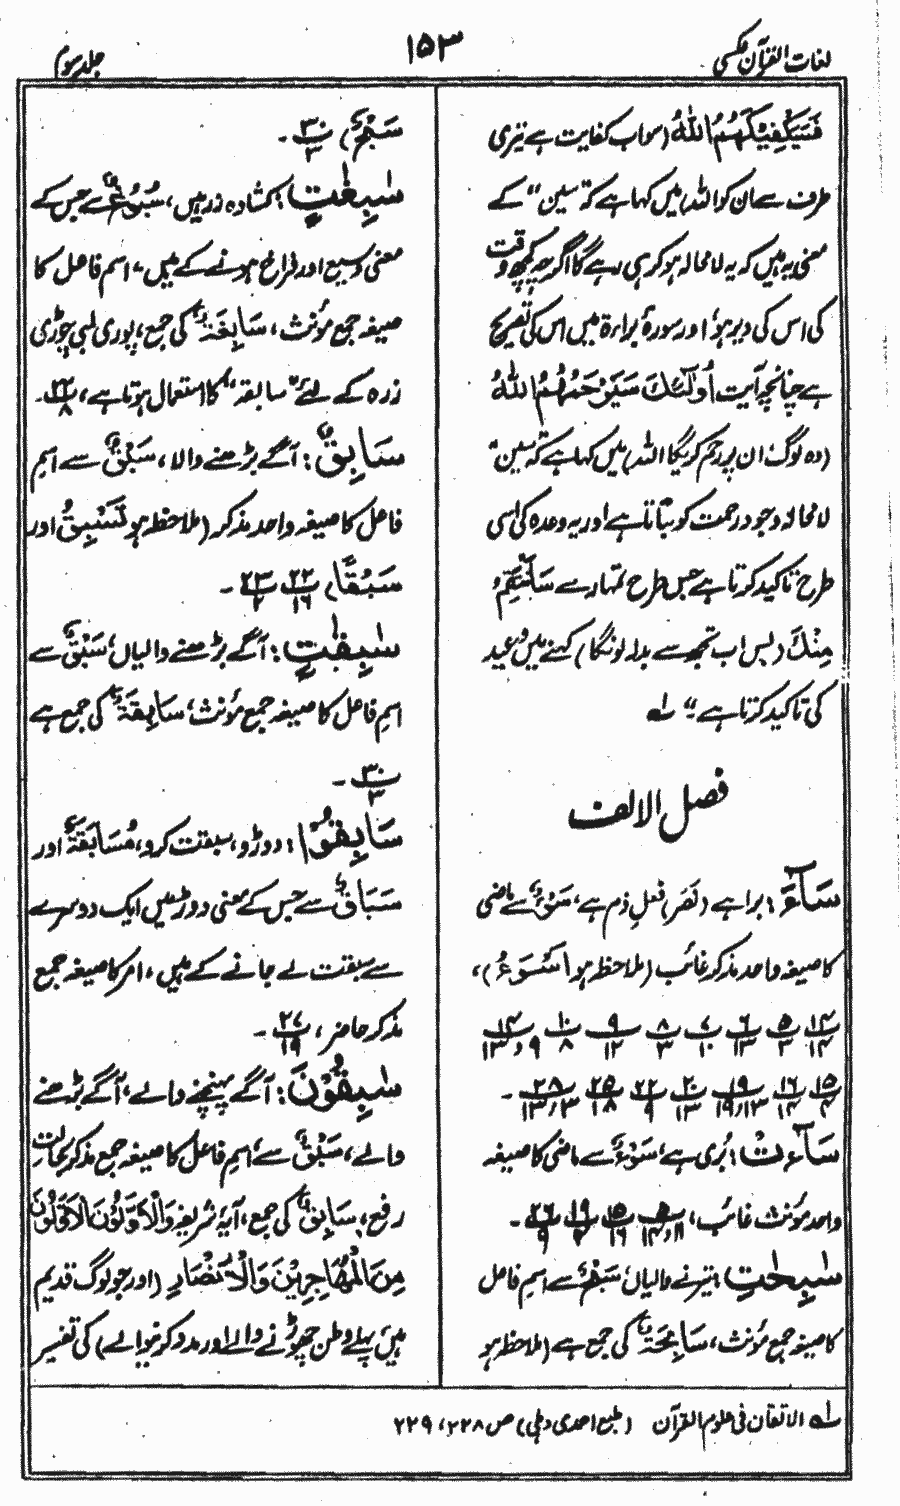 لغات القرآن عکسی
۱۵۳
جلد سوم
فَسَيَكْفِيْكَهُمُ اللّٰهُ (سواب کفایت ہے تیری
طرف سے ان کو اللہ) میں کہا ہے کہ "سین" کے
معنی یہ ہیں کہ یہ لامحالہ ہو کر ہی رہے گا اگرچہ کچھ وقت
کی اس کی دیر ہو، اور سورۂ براءۃ میں اس کی تصریح
ہے چنانچہ آیت اُولٰٓئِكَ سَيَرْحَمُهُمُ اللّٰهُ
(وہ لوگ ان پر رحم کریگا اللہ) میں کہا ہے کہ "سین"
لامحالہ وجود رحمت کو بتاتا ہے اور یہ وعدہ کی اسی
طرح تاکید کرتا ہے جس طرح تمہارے سَاَنْتَقِمُ
مِنْكَ (بس اب تجھ سے بدلہ لونگا) کہنے میں وعید
کی تاکید کرتا ہے۔" لہ
فصل الالف
سَآءَ: برا ہے (نَصَرَ) فعلِ ذم ہے، سَوْءٌ سے ماضی
کا صیغہ واحد مذکر غائب (ملاحظہ ہو اَسُوْءُ)،
۱۴/۱۴ ۵/۳ ۶/۱۳ ۷/۱۰ ۸/۳ ۹/۱۲ ۱۰/۸ ۱۴/۹و۱۳
۱۵/۴ ۱۶/۱۴ ۱۹/۱۳،۱۹ ۲۰/۱۳ ۲۲/۹ ۲۵/۱۸ ۲۸/۳،۱۳۔
سَآءَتْ: بُری ہے، سَوْءٌ سے ماضی کا صیغہ
واحد مؤنث غائب، ۵/۱۱و۱۴ ۱۵/۱۶ ۱۹/۲ ۲۶/۹۔
سٰبِحٰتِ: تیرنے والیاں، سَبْحٌ سے اسم فاعل
کا صیغہ جمع مؤنث، سَابِحَةٌ کی جمع ہے (ملاحظہ ہو
سَبْحٌ) ۳۰/۳۔
سٰبِغٰتٍ: کشادہ زرہیں، سُبُوْغٌ سے جس کے
معنی وسیع اور فراخ ہونے کے ہیں، اسم فاعل کا
صیغہ جمع مؤنث، سَابِغَةٌ کی جمع، پوری لمبی چوڑی
زرہ کے لئے "سابغہ" کا استعمال ہوتا ہے، ۲۲/۸۔
سَابِقٌ: آگے بڑھنے والا، سَبْقٌ سے اسم
فاعل کا صیغہ واحد مذکر (ملاحظہ ہو تَسْبِقُ اور
سَبْقًا) ۲۲/۱۶ ۲۳/۲۔
سٰبِقٰتِ: آگے بڑھنے والیاں، سَبْقٌ سے
اسمِ فاعل کا صیغہ جمع مؤنث، سَابِقَةٌ کی جمع ہے
۳۰/۳۔
سَابِقُوْا: دوڑو، سبقت کرو، مُسَابَقَةٌ اور
سَبَاقٌ سے جس کے معنی دوڑ میں ایک دوسرے
سے سبقت لے جانے کے ہیں، امر کا صیغہ جمع
مذکر حاضر، ۲۷/۱۹۔
سٰبِقُوْنَ: آگے پہنچنے والے، آگے بڑھنے
والے، سَبْقٌ سے، اسمِ فاعل کا صیغہ جمع مذکر بحالتِ
رفع، سَابِقٌ کی جمع، آیۂ شریفہ وَالْاَوَّلُوْنَ الْاَوَّلُوْنَ
مِنَ الْمُهَاجِرِيْنَ وَالْاَنْصَارِ (اور جو لوگ قدیم
ہیں، پہلے وطن چھوڑنے والے اور مدد کرنیوالے) کی تفسیر
لہ الاتقان فی علوم القرآن (طبع احمدی دہلی) ص ۲۲۸، ۲۲۹